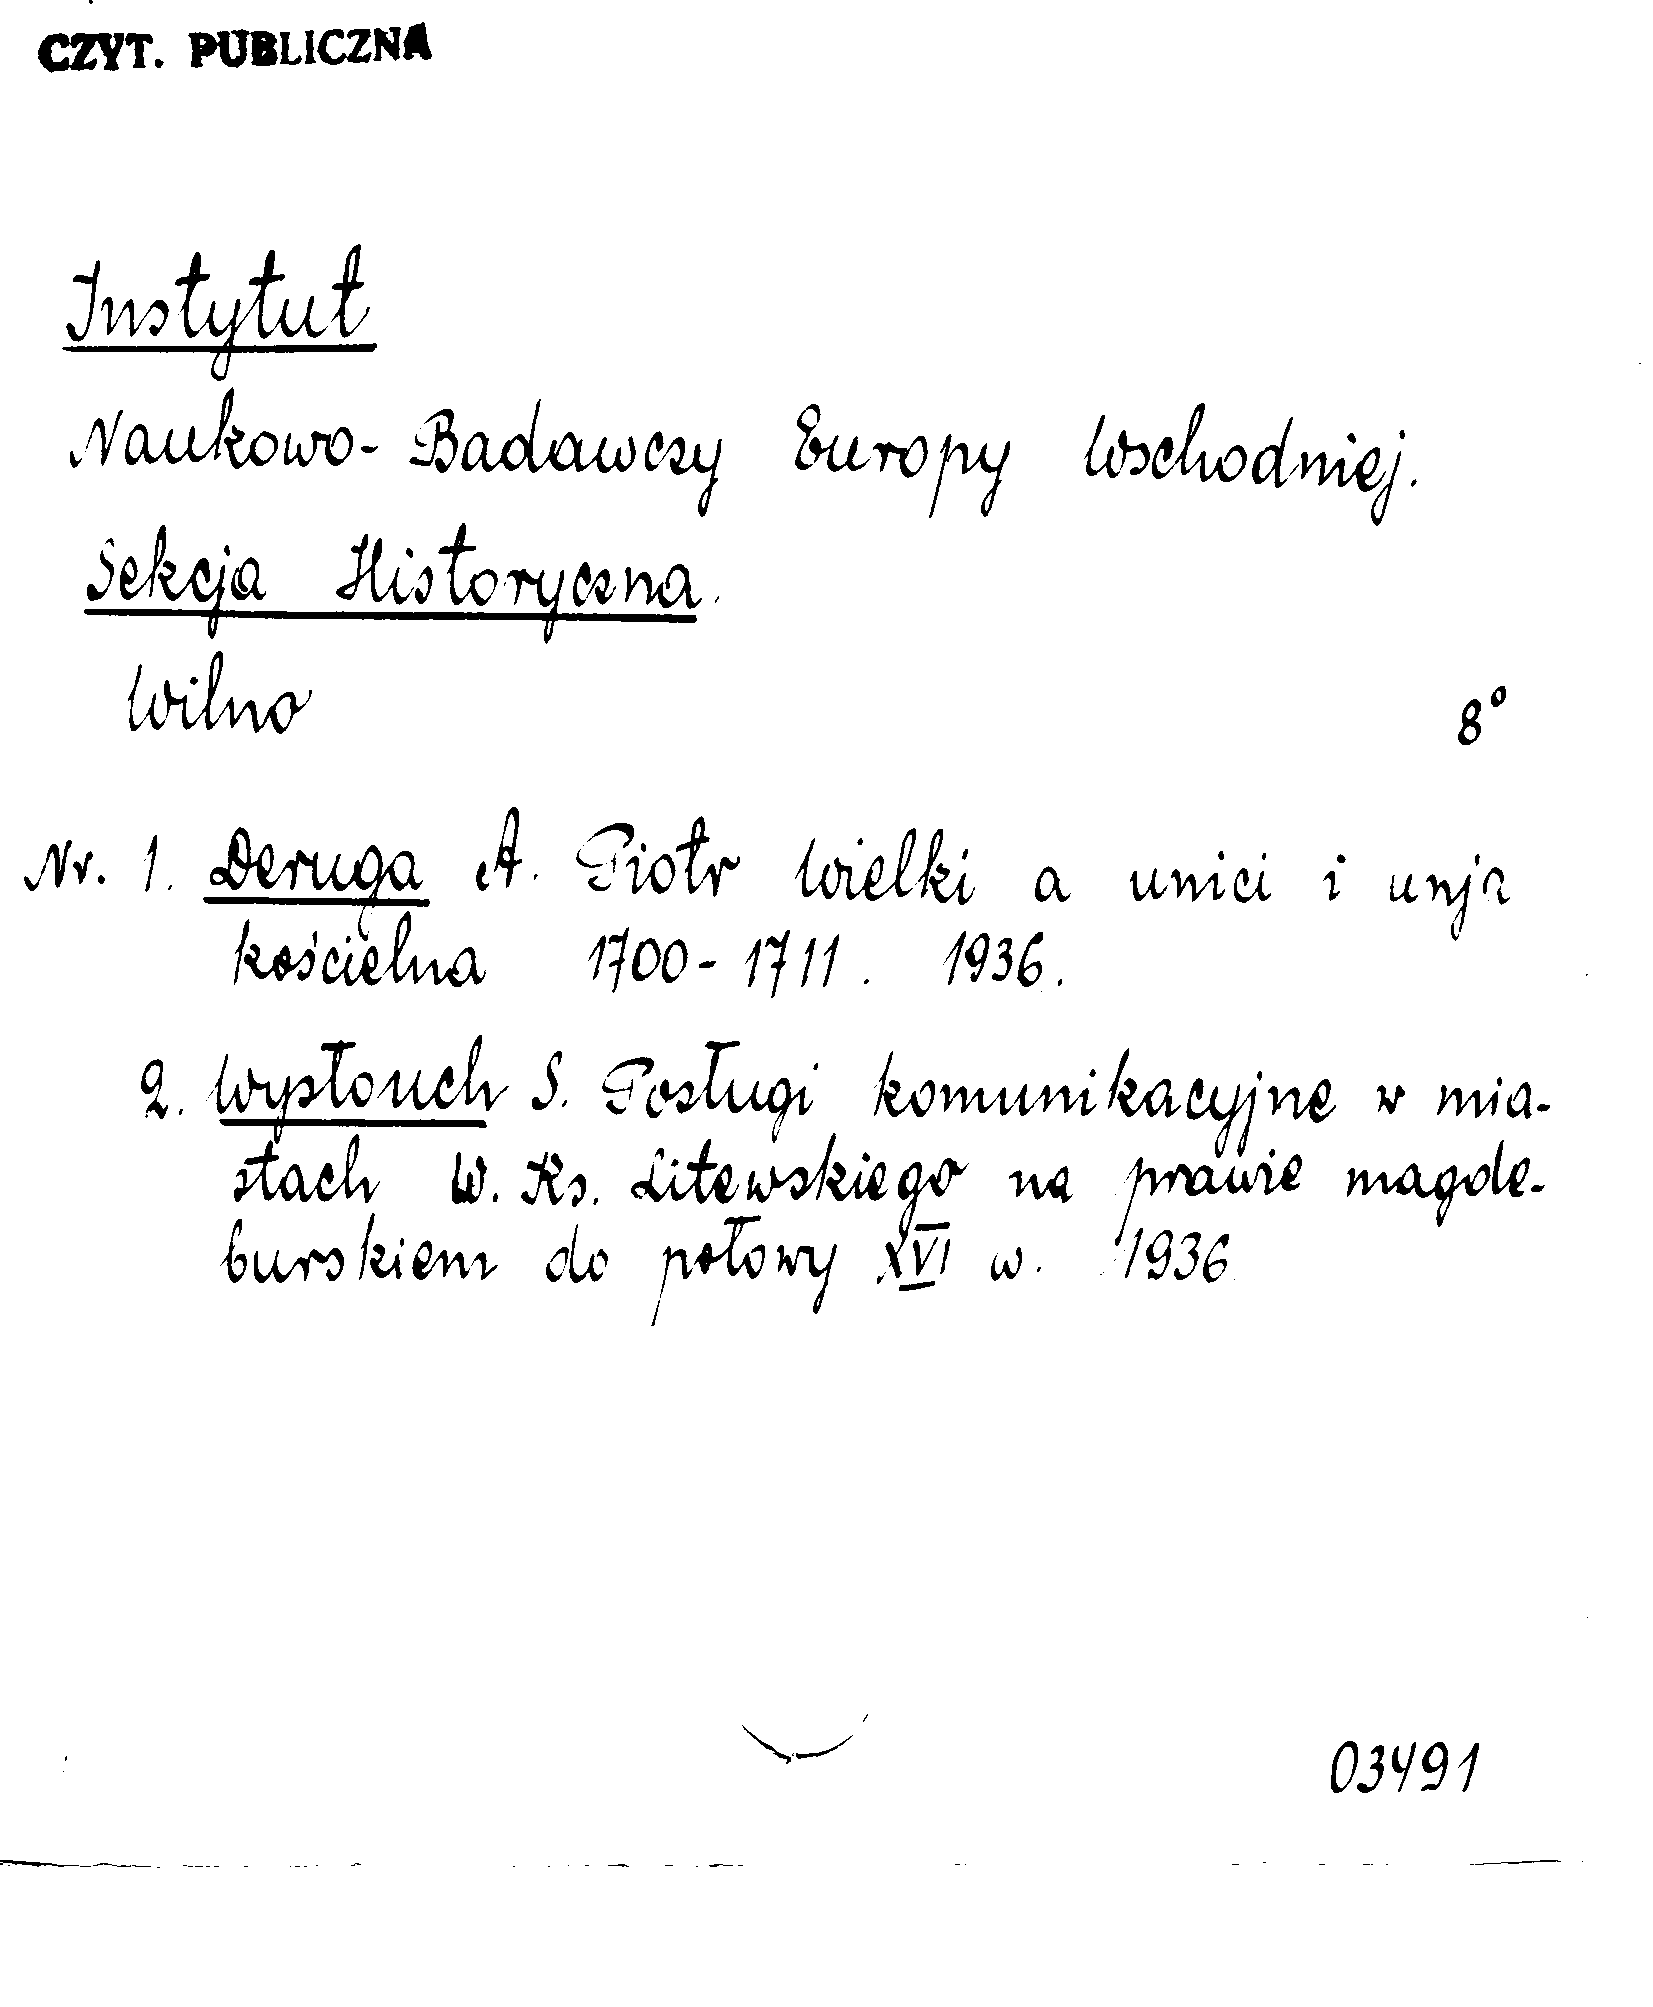 CZYT. PUBLICZNA
Instytut
Naukowo-Badawczy Europy Wschodniej.
Sekcja Historyczna.
Wilno 8°
Nr. 1. Deruga A. Piotr Wielki a unici i unja
kościelna 1700-1711. 1936.
2. Wysłouch S. Posługi komunikacyjne w mia-
stach W. Ks. Litewskiego na prawie magde-
burskiem do połowy XVI w. 1936
03491